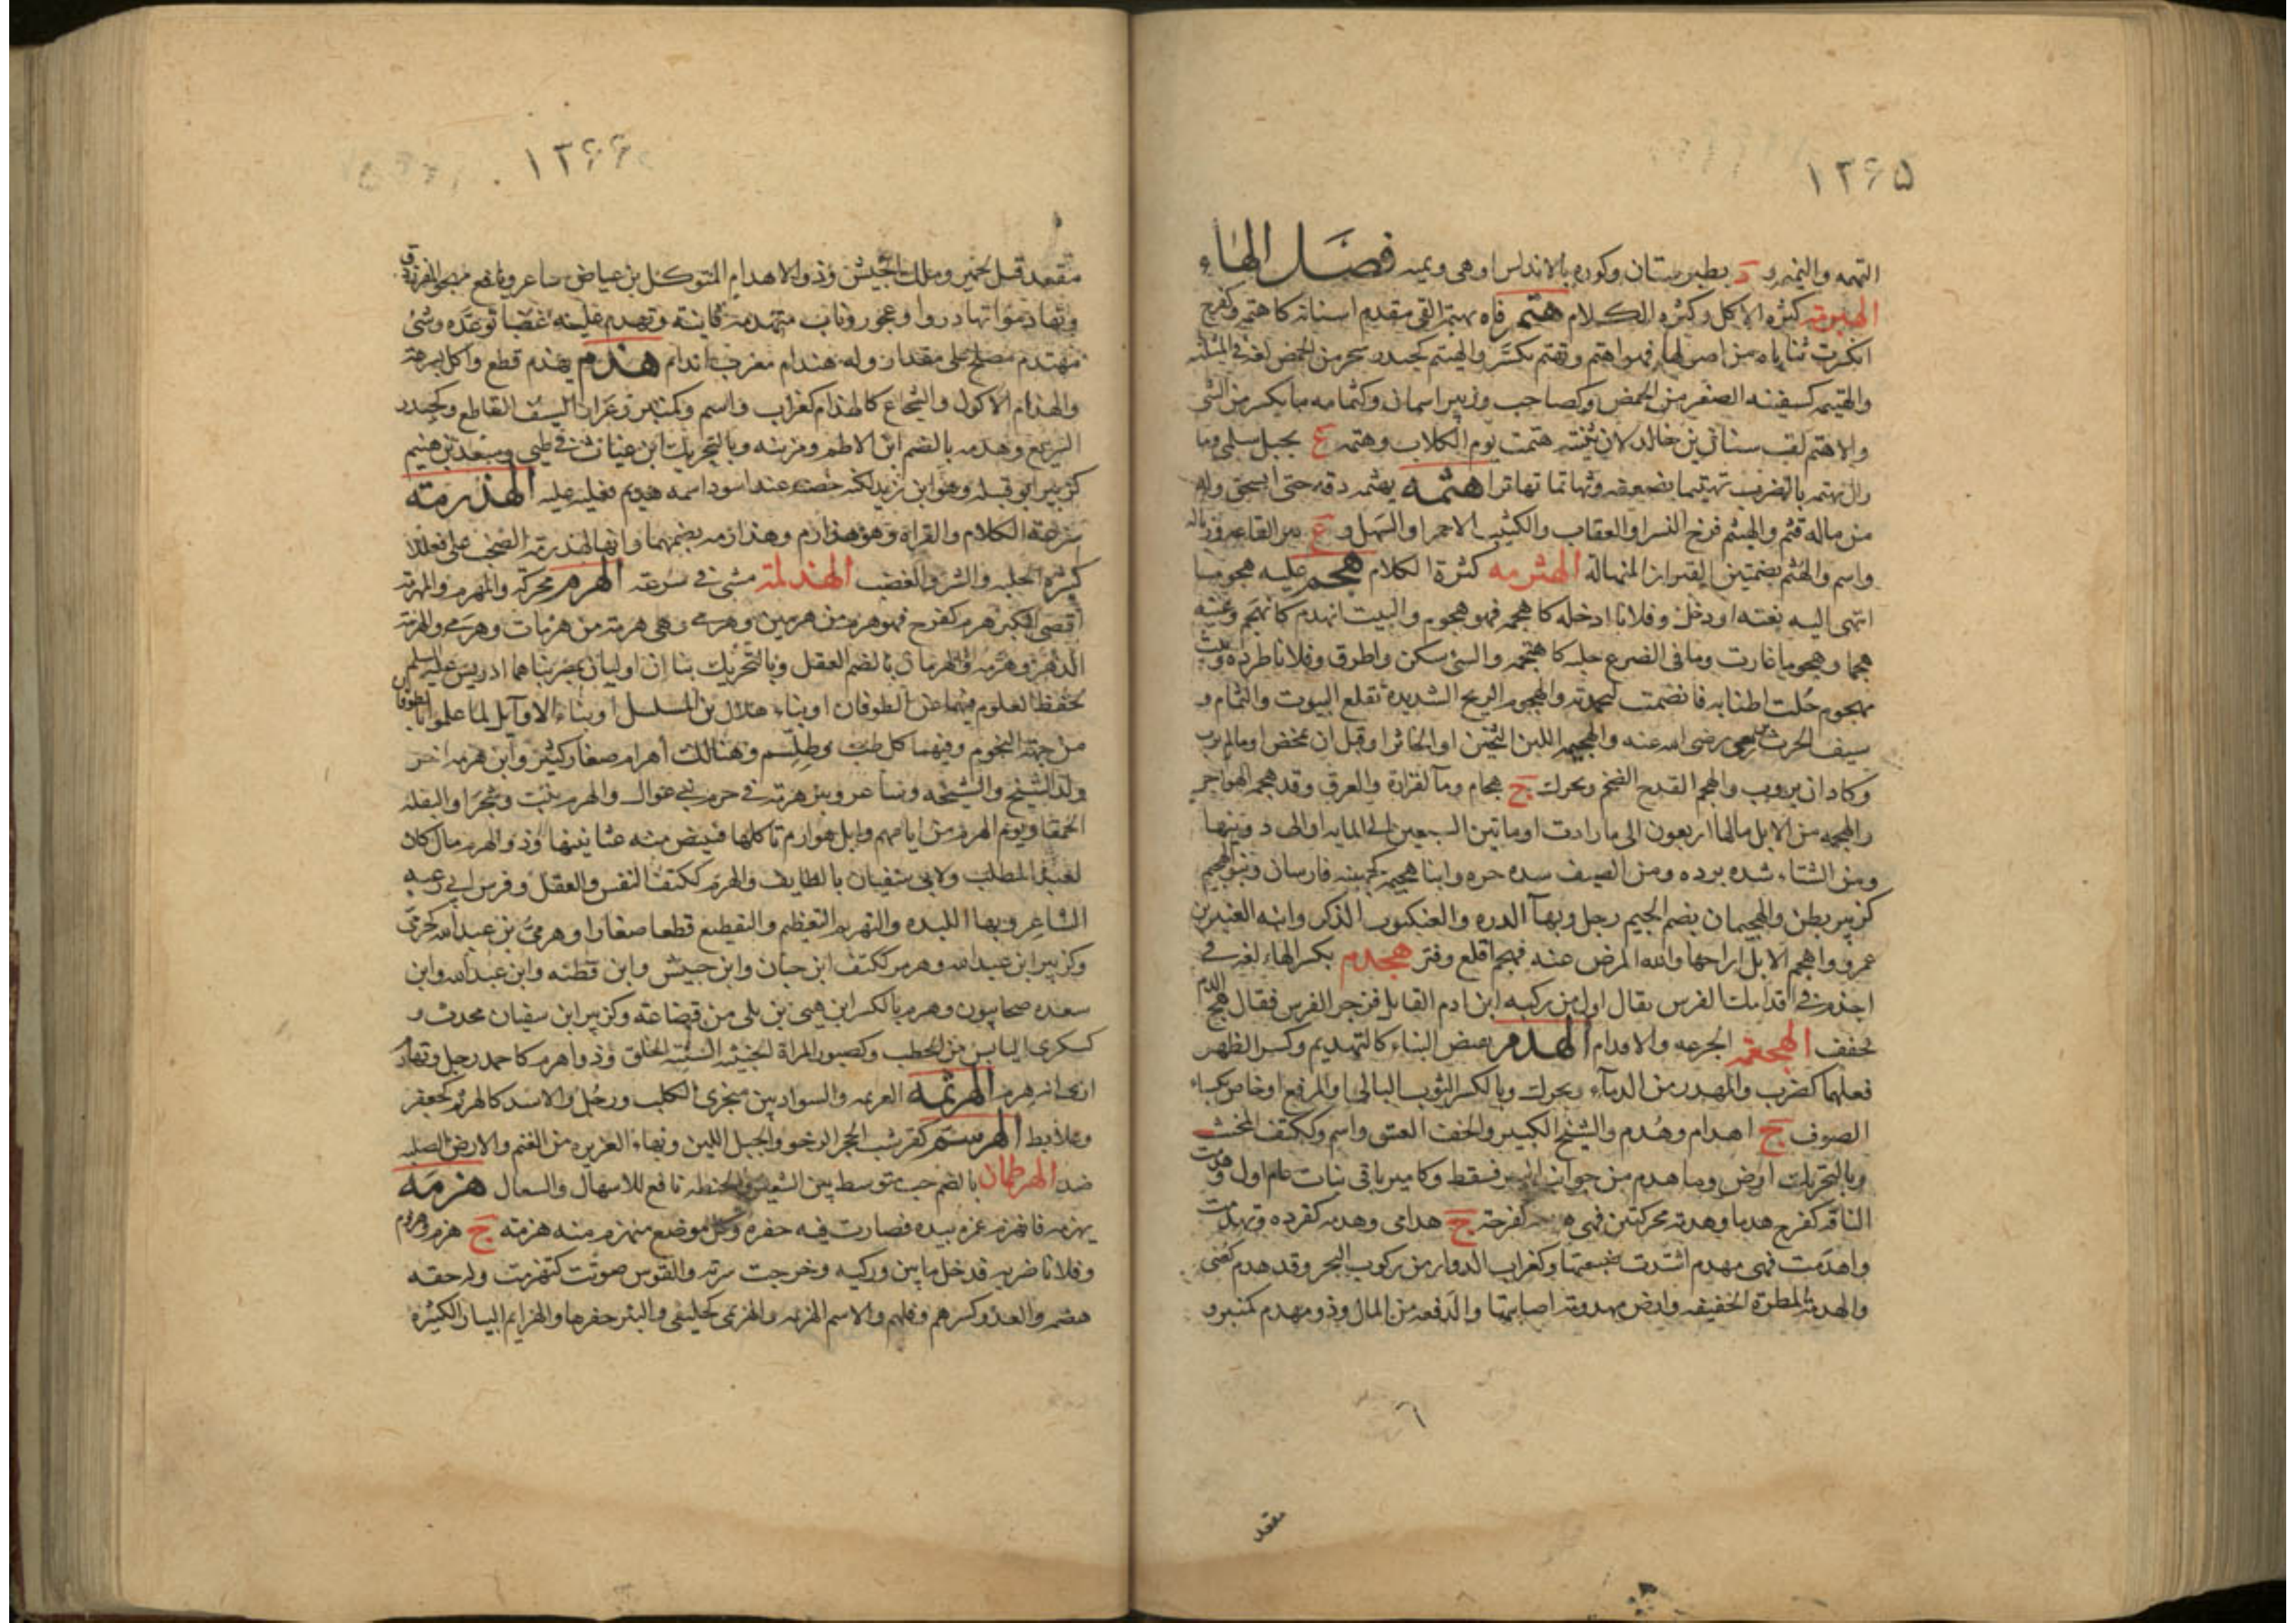 ١٢٦٥
التهمه والنميه و د بطبرستان وكوره بالاندلس او هى ويميه فصل الهاء
الهبرمة كثره الاكل وكثره الكلام هتم فاه يهتمه القى مقدم اسنانه كاهتمه وكفرح
انكسرت ثناياه من اصولها فهو اهتم وتهتم تكسر والهيتم كحيدر شجر من الحمض لغه فى المثلثه
والهتيمه كسفينه الصغر من الحمض وكصاحب وزبير اسمان وكثمامه ما يكسر من الشى
والاهتم لقب سنان بن خالد لان ثنيته هتمت يوم الكلاب وهتمه ع بجبل سلمى وما
زال يهتمه بالضرب تهتيما يضعفه وتهاتما تهاترا هثمه يهثمه دقه حتى انسحق وله
من ماله قثم والهيثم فرخ النسر او العقاب والكثيب الاحمر او السهل و ع بين القاع وزباله
واسم والهثم بضمتين القيران المنهاله الهثرمه كثرة الكلام هجم عليه هجوما
انتهى اليه بغته او دخل وفلانا ادخله كاهجمه فهو هجوم والبيت انهدم كانهجم وعينه
هجما وهجوما غارت وما فى الضرع حلبه كاهتجمه والشى سكن واطرق وفلانا طرده وبيت
مهجوم حلت اطنابه فانضمت اعمدته والهجوم الريح الشديدة تقلع البيوت والثمام و
سيف الحرث رضى الله عنه والهجيمه اللبن الثخين او الخاثر او قبل ان يمخض او مالم يرب
وكاد ان يروب والهجم القدح الضخم ويحرك ج اهجام وماء لفزارة والعرق وقد هجمه الهواجر
والهجمه من الابل اولها اربعون الى ما زادت او ما بين السبعين الى المايه او الى دوينها
ومن الشتاء شده برده ومن الصيف شده حره وابنا هجيمه كجهينه فارسان وبنو الهجيم
كزبير بطن والهيجمان بضم الجيم رجل وبهاء الدره والعنكبوت الذكر وابنه العنبر بن
عمرو واهجم الابل اراحها والله المرض عنه فهجم اقلع وفتر هجدم بكسر الهاء لغه فى
اجدم فى اقدامك الفرس يقال اول من ركبه ابن ادم القاتل فزجر الفرس فقال هج الدم
فخفف الهجعمه الجرءه والاقدام الهدم نقض البناء كالتهديم وكسر الظهر
فعلهما كضرب والمهدر من الدماء ويحرك وبالكسر الثوب البالى او المرقع او خاص بكساء
الصوف ج اهدام وهدم والشيخ الكبير والخف العتيق واسم وككتف المخنث
وبالتحريك ارض وما هدم من جوانب البير فسقط وكامير باقى نبات عام اول وهدمت
الناقه كفرح هدما وهدمة محركتين فهى هدمه كفرحه ج هدامى وهدمه كقرده وتهدمت
واهدمت فهى مهدم اشتدت ضبعتها وكغراب الدوار من ركوب البحر وقد هدم كعنى
والهدمة المطرة الخفيفه وارض مهدومه اصابتها والدفعه من المال وذو مهدم كمنبر و
مقعد
٦
١٢٦٦
مقعد قيل لحمير وملك الحبش وذو الاهدام المتوكل بن عياض شاعر ونافع مهجو الفرزدق
وتهادموا تهادروا وعجوز وناب متهدمة فانية وتهدم عليه غضبا توعده وشى
مهندم مصلح على مقدار وله هندام معرب اندام هذم يهذم قطع واكل بسرعة
والهذام الاكول والشجاع كالهذام كغراب واسم وكمنبر وغراب السيف القاطع وكحيدر
السريع وهذمه بالضم ابن لاطم ومزينه وبالتحريك ابن عناب فى طيى وسعد بن هذيم
كزبير ابو قبيله وهو ابن زيد لكنه حضنه عبد اسود اسمه هذيم فغلب عليه الهذرمة
سرعة الكلام والقراة وهو هذارم وهذارمه بضمهما وانها لهذرمة الصخب على فعللة
كثيرة الجلبه والشر والغضب الهذلمة مشى فى سرعه الهرم محركة والمهرم والمهرمة
اقصى الكبر هرم كفرح فهو هرم من هرمين وهرمى وهى هرمة من هرمات وهرمى واهرمه
الدهر وهرمه والهرمان بالضم العقل وبالتحريك بناان ازليان بمصر بناهما ادريس عليه السلم
لحفظ العلوم فيهما عن الطوفان او بناء سنان بن المشلشل او بناء الاوايل لما علموا بالطوفان
من جهة النجوم وفيهما كل طب وطلسم وهنالك اهرام صغار كثيرة وابن هرمه اخر
ولد الشيخ والشيخه وشاعر وبير هرمة فى حزم بنى عوال والهرم نبت وشجر او البقله
الحمقا ويوم الهرم من ايامهم وابل هوارم تاكلها فيبيض منه عثانينها وذو الهرم مال كان
لعبد المطلب ولابى سفيان بالطايف والهرم ككتف النفس والعقل وفرس ابى زعبه
الشاعر وبهاء اللبده والتهريم التعظيم والتقطيع قطعا صغارا وهرمى بن عبد الله كحرمى
وكزبير ابن عبد الله وهرم ككتف ابن حيان وابن خبش وابن قطبه وابن عبد الله وابن
سعده صحابيون وهرم بالكسر ابن هنى بن بلى من قضاعة وكزبير ابن سفيان محدث و
كسكرى اليابس من الحطب وكصبور المراة الخبيثه السيئه الخلق وذو اهرم كاحمد رجل وتهارم
ارى انه هرم الهرثمه العرتمه والسواد بين منخرى الكلب ورجل والاسد كالهرثم كجعفر
وعلابط الهرشم كقرشب الحجر الرخو والجبل اللين وبهاء الغزيره من الغنم والارض الصلبه
ضد الهرطمان بالضم حب متوسط بين الشعير والحنطه نافع للاسهال والسعال هزمه
يهزمه فانهزم غمزه بيده فصارت فيه حفره وكل موضع منهزم منه هزمه ج هزم وهزوم
وفلانا ضربه فدخل ما بين وركيه وخرجت سرته والقوس صوتت كتهزمت وله حقه
هضمه والعدو كسرهم وفلهم والاسم الهزيمه والهزيمى كخليفى والبئر حفرها والهزايم البيار الكثيرة